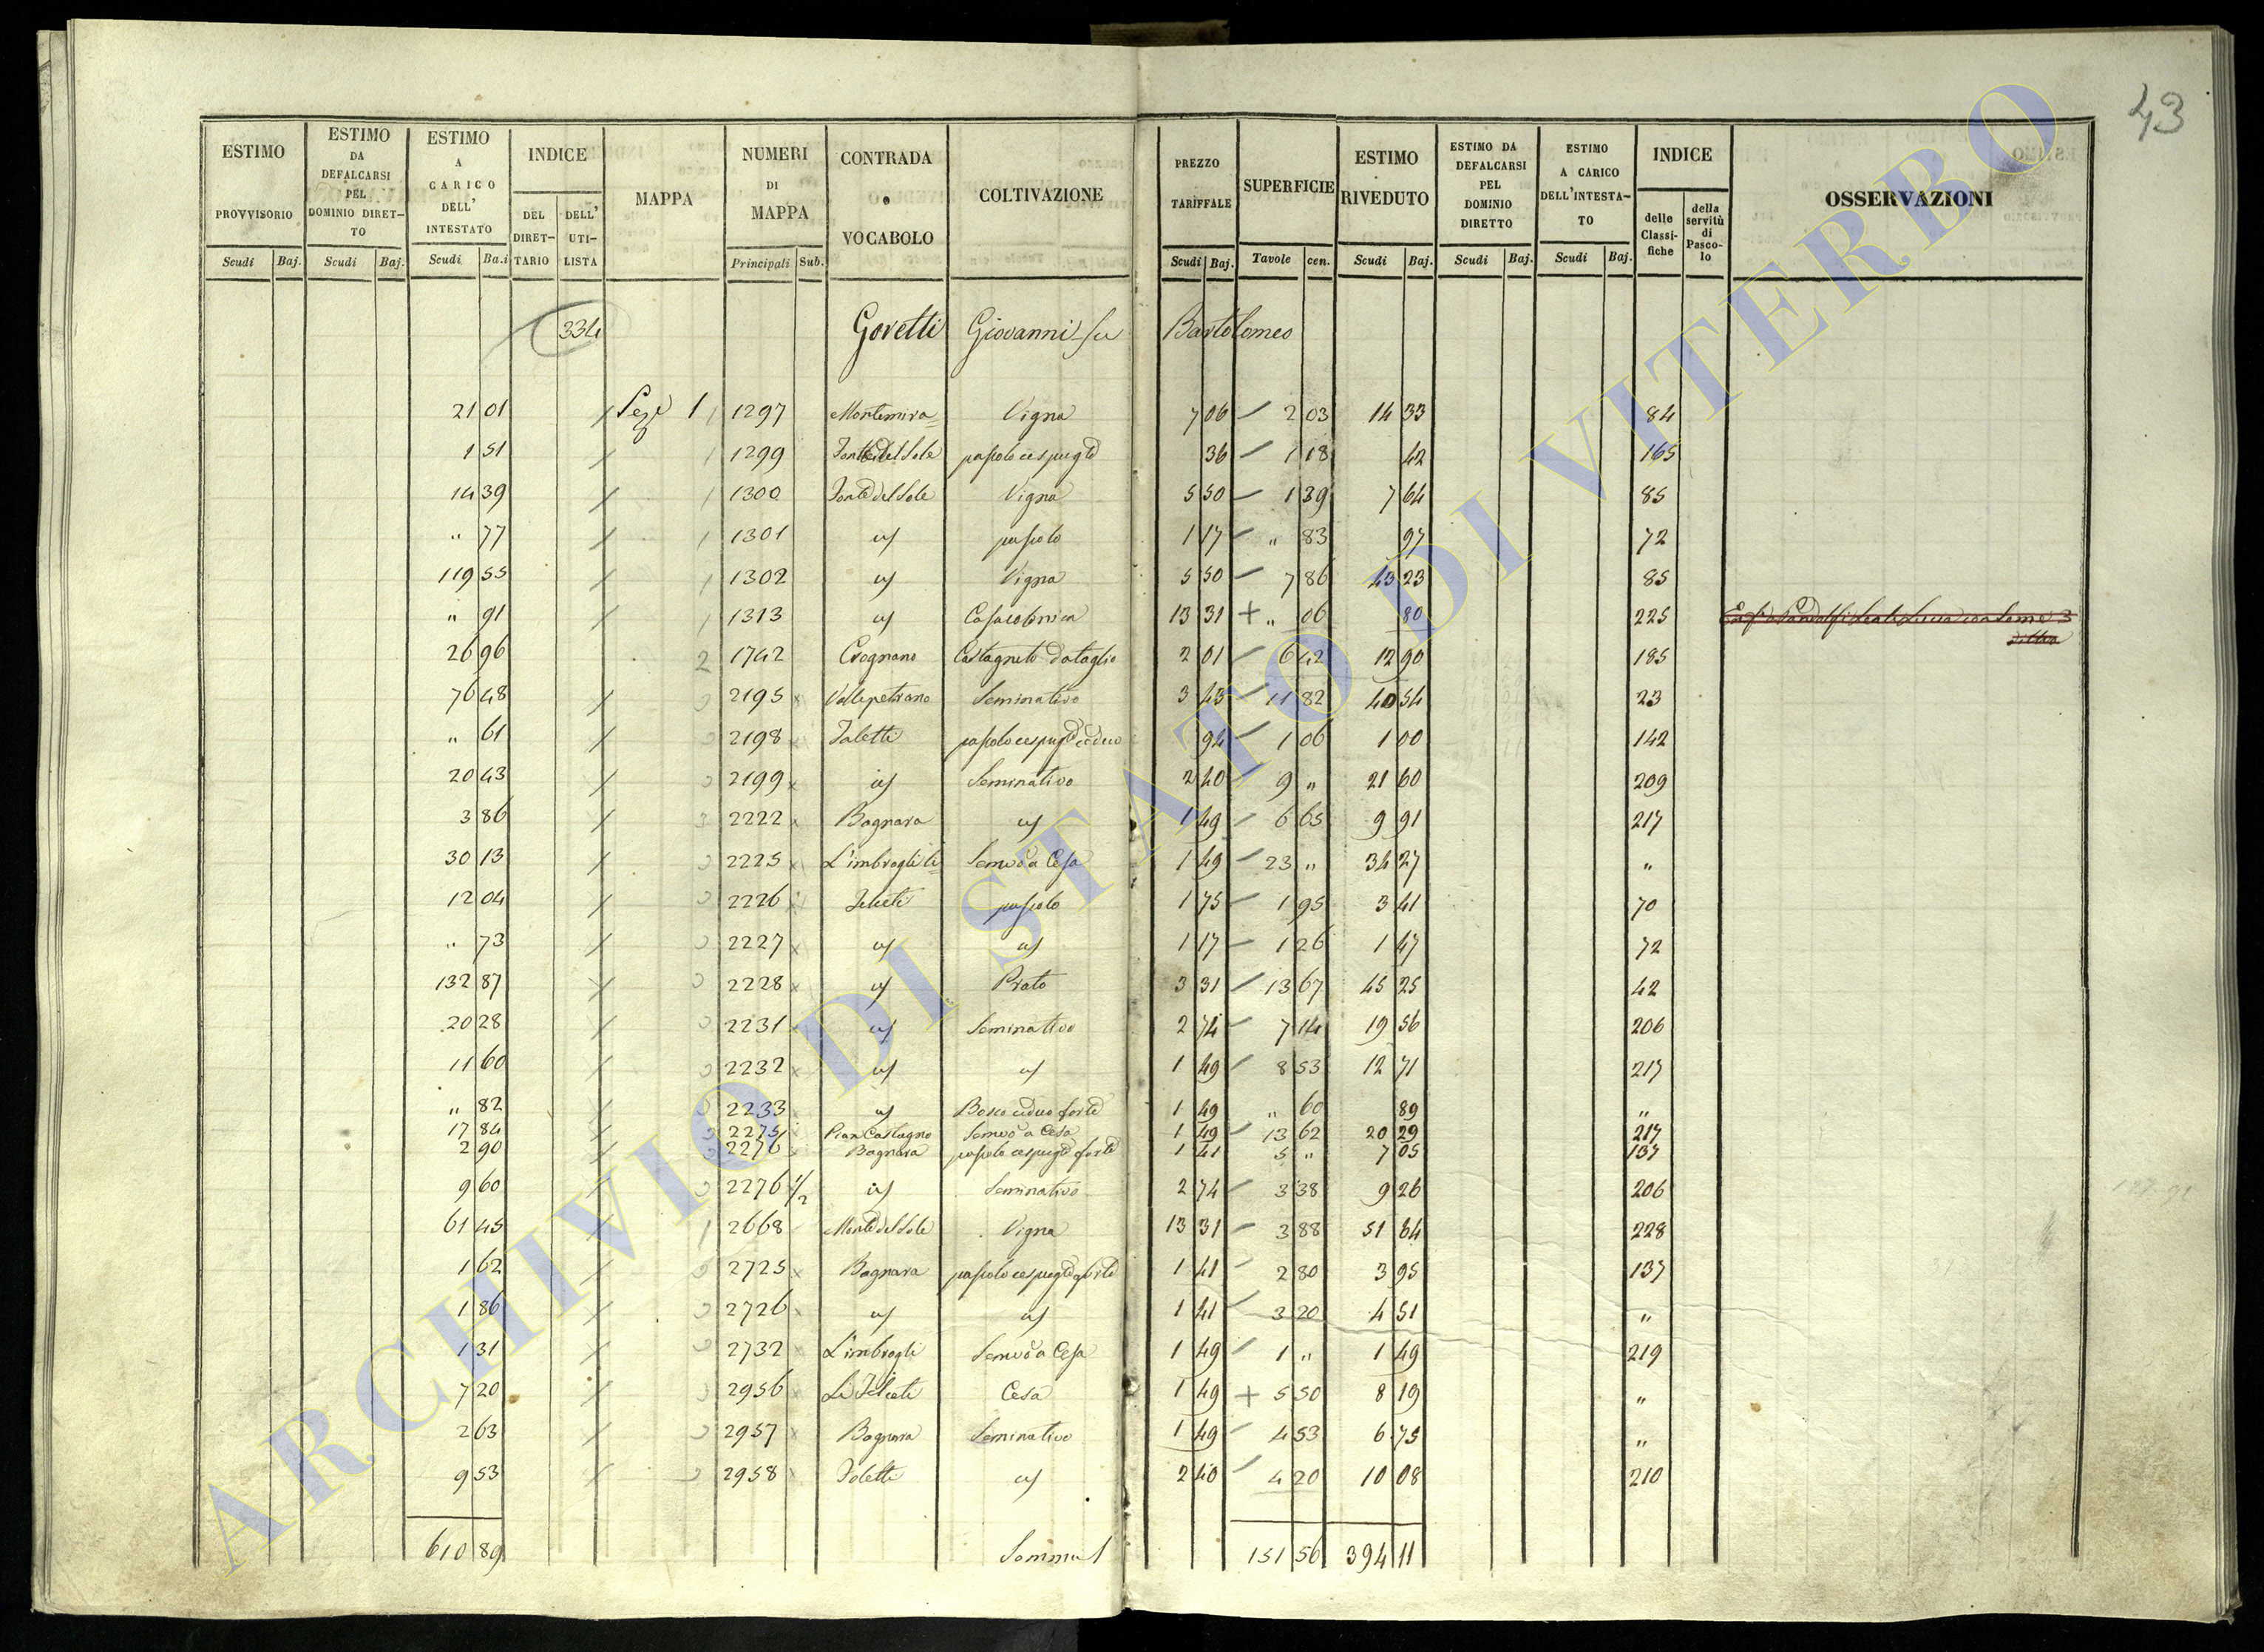 43
ESTIMO PROVVISORIO Scudi Baj.
ESTIMO DA DEFALCARSI PEL DOMINIO DIRETTO Scudi Baj.
ESTIMO A CARICO DELL' INTESTATO Scudi Ba.i
INDICE DEL DIRETTARIO DELL' UTILISTA
MAPPA
NUMERI DI MAPPA Principali Sub.
CONTRADA o VOCABOLO
COLTIVAZIONE
PREZZO TARIFFALE Scudi Baj.
SUPERFICIE Tavole cen.
ESTIMO RIVEDUTO Scudi Baj.
ESTIMO DA DEFALCARSI PEL DOMINIO DIRETTO Scudi Baj.
ESTIMO A CARICO DELL'INTESTATO Scudi Baj.
INDICE delle Classifiche della servitù di Pascolo
OSSERVAZIONI
334 Goretti Giovanni fu Bartolomeo
21 01 / Seze 1 / 1297 Montemira Vigna 7 06 – 2 03 14 33 84
1 51 / 1 1299 Fonte del Sole pascolo cespugto 36 – 1 18 42 165
14 39 / 1 1300 Fonte del Sole Vigna 5 50 – 1 39 7 64 85
" 77 / 1 1301 id pascolo 1 17 – " 83 97 72
119 55 / 1 1302 id Vigna 5 50 – 7 86 43 23 85
" 91 / 1 1313 id Casa colonica 13 31 + " 06 80 225
26 96 2 1742 Crognano Castagneto da taglio 2 01 – 6 42 12 90 185
76 48 / 3 2195 x Vallepetrano Seminativo 3 43 – 11 82 40 54 23
" 61 / 3 2198 x Faletti pascolo cespugto ceduo 94 – 1 06 1 00 142
20 43 / 3 2199 x id Seminativo 2 40 – 9 " 21 60 209
3 86 / 3 2222 x Bagnara id 1 49 – 6 65 9 91 217
30 13 / 3 2225 x L'imbrogli Semvo a Cesa 1 49 – 23 " 34 27 "
12 04 / 3 2226 x pascolo 1 75 – 1 95 3 41 70
" 73 / 3 2227 x id id 1 17 – 1 26 1 47 72
132 87 / 3 2228 x id Prato 3 31 – 13 67 45 25 42
20 28 / 3 2231 id Seminativo 2 74 – 7 14 19 56 206
11 60 / 3 2232 x id id 1 49 – 8 53 12 71 217
" 82 / 3 2233 id Bosco ceduo forte 1 49 " 60 89 "
17 84 / 3 2275 Pian Castagno Semvo a Cesa 1 49 – 13 62 20 29 217
2 90 / 3 2276 Bagnara pascolo cespugto forte 1 41 5 " 7 05 137
9 60 / 3 2276 1/2 id Seminativo 2 74 – 3 38 9 26 206
61 45 / 1 2668 Monte del Sole Vigna 13 31 – 3 88 51 64 228
1 62 / 3 2725 x Bagnara pascolo cespugto forte 1 41 – 2 80 3 95 137
1 86 / 3 2726 id id 1 41 – 3 20 4 51 "
1 31 / 3 2732 x L'imbrogli Semvo a Cesa 1 49 – 1 " 1 49 219
7 20 / 3 2956 x Cesa 1 49 + 5 50 8 19 "
2 63 / 3 2957 x Bagnara Seminativo 1 49 – 4 53 6 75 "
9 53 / 3 2958 x Foletti id 2 40 – 4 20 10 08 210
610 89 Somma 151 56 394 11
ARCHIVIO DI STATO DI VITERBO